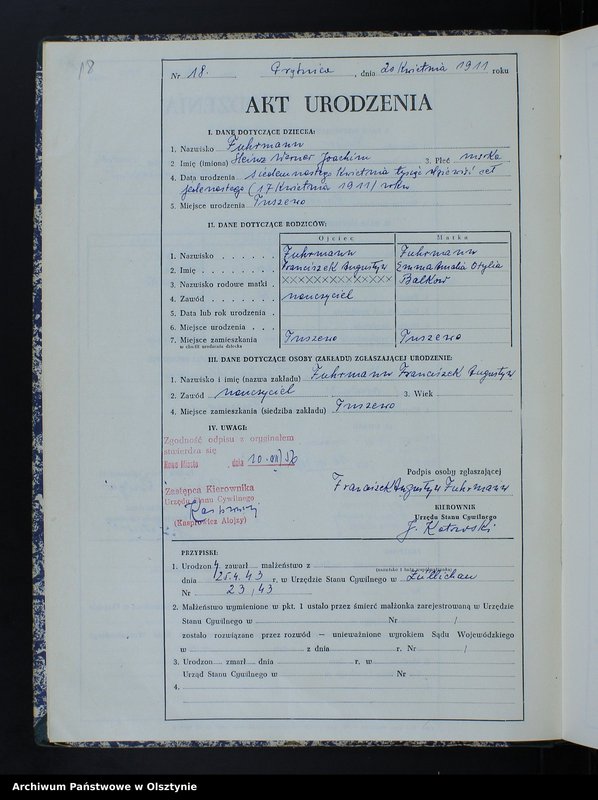 18
Nr 18. , dnia 20 Kwietnia 1911 roku
AKT URODZENIA
I. DANE DOTYCZĄCE DZIECKA:
1. Nazwisko Fuhrmann
2. Imię (imiona) Heinz Werner Joachim 3. Płeć męska
4. Data urodzenia siedemnastego Kwietnia tysiąc dziewięć set
jedenastego (17 Kwietnia 1911) roku
5. Miejsce urodzenia Tuszewo
II. DANE DOTYCZĄCE RODZICÓW:
Ojciec Matka
1. Nazwisko Fuhrmann Fuhrmann
2. Imię Franciszek Augustyn Emma Amalia Otylia
3. Nazwisko rodowe matki XXXXXXXXXXXX Balkow
4. Zawód nauczyciel
5. Data lub rok urodzenia
6. Miejsce urodzenia
7. Miejsce zamieszkania Tuszewo Tuszewo
w chwili urodzenia dziecka
III. DANE DOTYCZĄCE OSOBY (ZAKŁADU) ZGŁASZAJĄCEJ URODZENIE:
1. Nazwisko i imię (nazwa zakładu) Fuhrmann Franciszek Augustyn
2. Zawód nauczyciel 3. Wiek
4. Miejsce zamieszkania (siedziba zakładu) Tuszewo
IV. UWAGI:
Zgodność odpisu z oryginałem
stwierdza się
Nowe Miasto, dnia 10.VII/56
Podpis osoby zgłaszającej
Franciszek Augustyn Fuhrmann
Zastępca Kierownika
Urzędu Stanu Cywilnego
(Kasprowicz Alojzy)
KIEROWNIK
Urzędu Stanu Cywilnego
J. Kotowski
PRZYPISKI:
1. Urodzony zawarł małżeństwo z
(nazwisko i imię współmałżonka)
dnia 25.4.43 r. w Urzędzie Stanu Cywilnego w Züllichau
Nr 23/43
2. Małżeństwo wymienione w pkt. 1 ustało przez śmierć małżonka zarejestrowaną w Urzędzie
Stanu Cywilnego w Nr /
zostało rozwiązane przez rozwód — unieważnione wyrokiem Sądu Wojewódzkiego
w z dnia r. Nr /
3. Urodzon zmarł dnia r. w
Urząd Stanu Cywilnego w Nr
4.
Archiwum Państwowe w Olsztynie